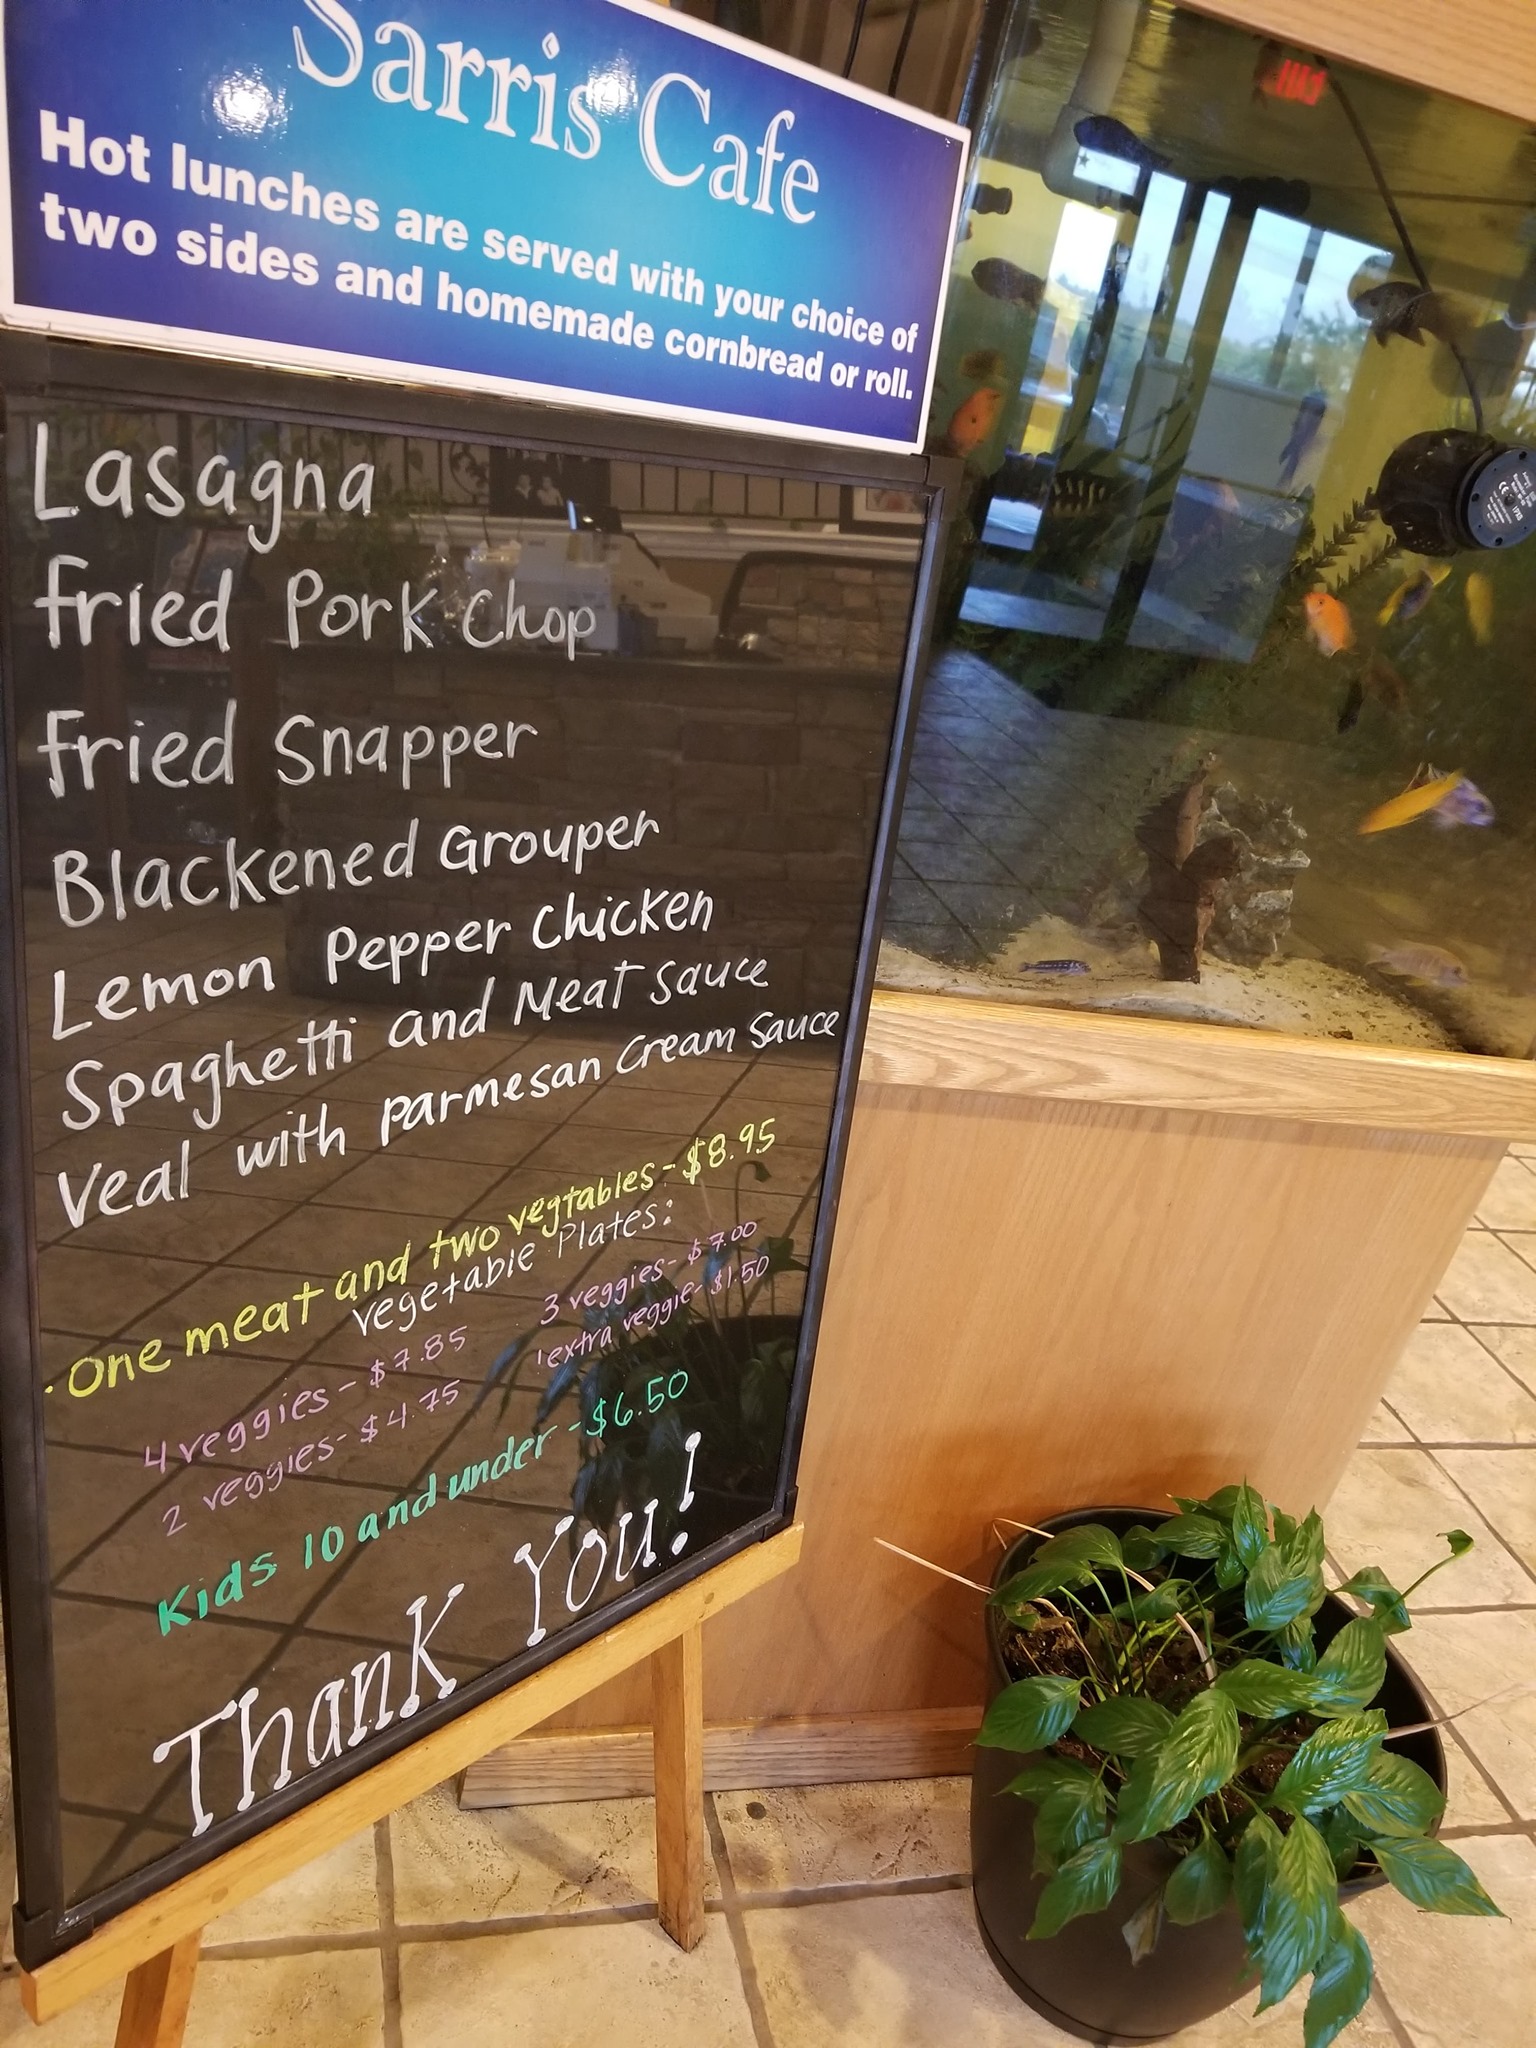 Sarris Cafe
Hot lunches are served with your choice of
two sides and homemade cornbread or roll.
Lasagna
Fried Pork Chop
Fried Snapper
Blackened Grouper
Lemon Pepper Chicken
Spaghetti and Meat Sauce
Veal with Parmesan Cream Sauce
. One meat and two vegtables - $8.95
vegetable Plates:
4 veggies - $7.85
3 veggies - $7.00
2 veggies - $4.75
1 extra veggie - $1.50
Kids 10 and under - $6.50
Thank You!